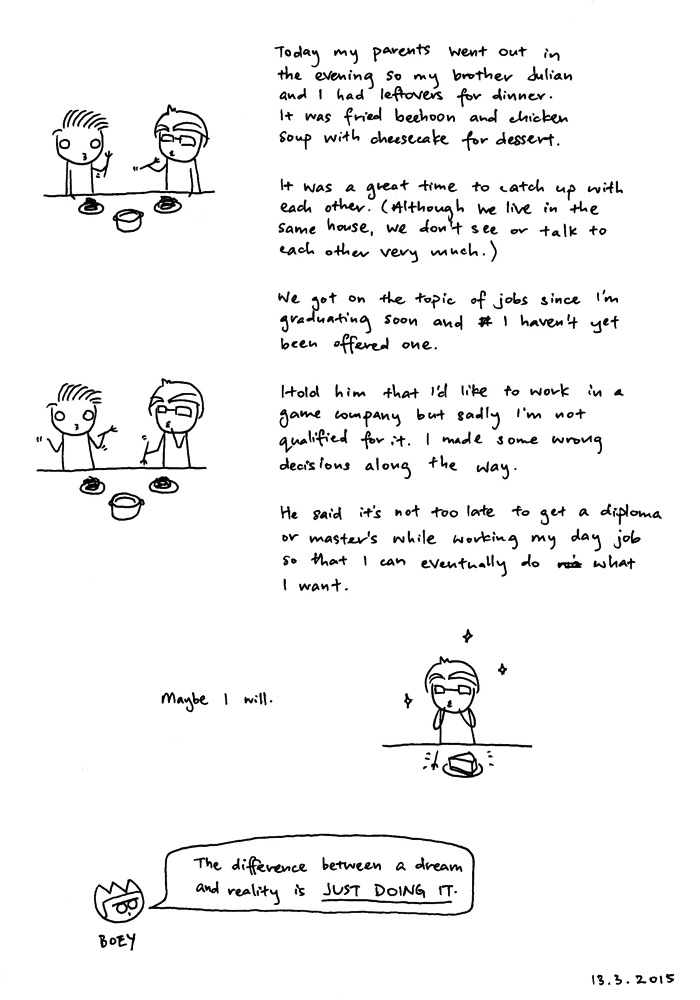 Today my parents went out in
the evening so my brother Julian
and I had leftovers for dinner.
It was fried beehoon and chicken
soup with cheesecake for dessert.
It was a great time to catch up with
each other. (Although we live in the
same house, we don't see or talk to
each other very much.)
We got on the topic of jobs since I'm
graduating soon and I haven't yet
been offered one.
I told him that I'd like to work in a
game company but sadly I'm not
qualified for it. I made some wrong
decisions along the way.
He said it's not too late to get a diploma
or master's while working my day job
so that I can eventually do what
I want.
Maybe I will.
The difference between a dream
and reality is JUST DOING IT.
BOEY
13.3.2015